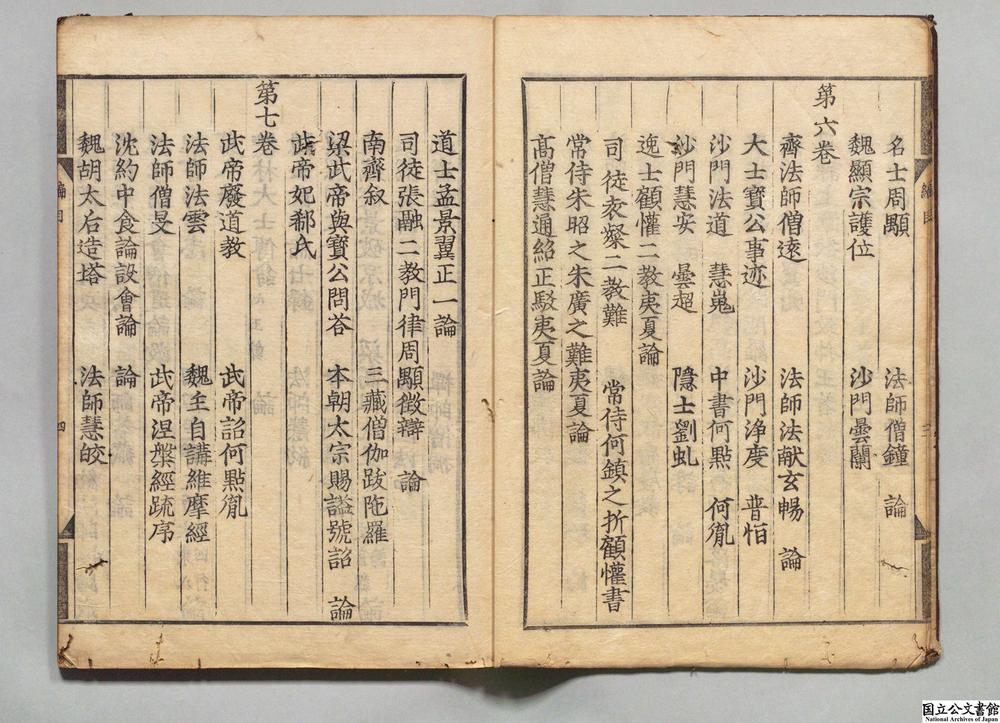 名士周顒 法師僧鐘 論
魏顯宗護位 沙門曇蘭
第六卷
齊法師僧遠 法師法献玄暢 論
大士寶公事迹 沙門浄度 普恒
沙門法道 慧嵬 中書何點 何胤
沙門慧安 曇超 隱士劉虬
逸士顧懽二教夷夏論
司徒袁粲二教難 常侍何鎮之折顧懽書
常侍朱昭之朱廣之難夷夏論
髙僧慧通紹正駁夷夏論
道士孟景翼正一論
司徒張融二教門律周顒徵辯 論
南齊叙 三藏僧伽跋陁羅
梁武帝與寶公問荅 本朝太宗賜謚號詔 論
武帝妃郗氏
第七卷
武帝廢道教 武帝詔何點胤
法師法雲 魏主自講維摩經
法師僧旻 武帝涅槃經疏序
沈約中食論設會論 論
魏胡太后造塔 法師慧皎
編目 四
国立公文書館
National Archives of Japan